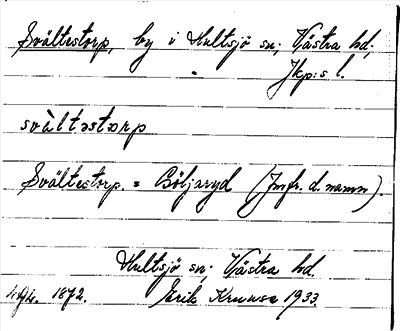 Svältestorp, by i Hultsjö sn, Västra hd,
Jkp:s l.
svàltəstɔrp
Svältestorp. = Böljaryd (Jmfr. d. namn).
Hultsjö sn; Västra hd.
1872. Erik Kruuse 1933.